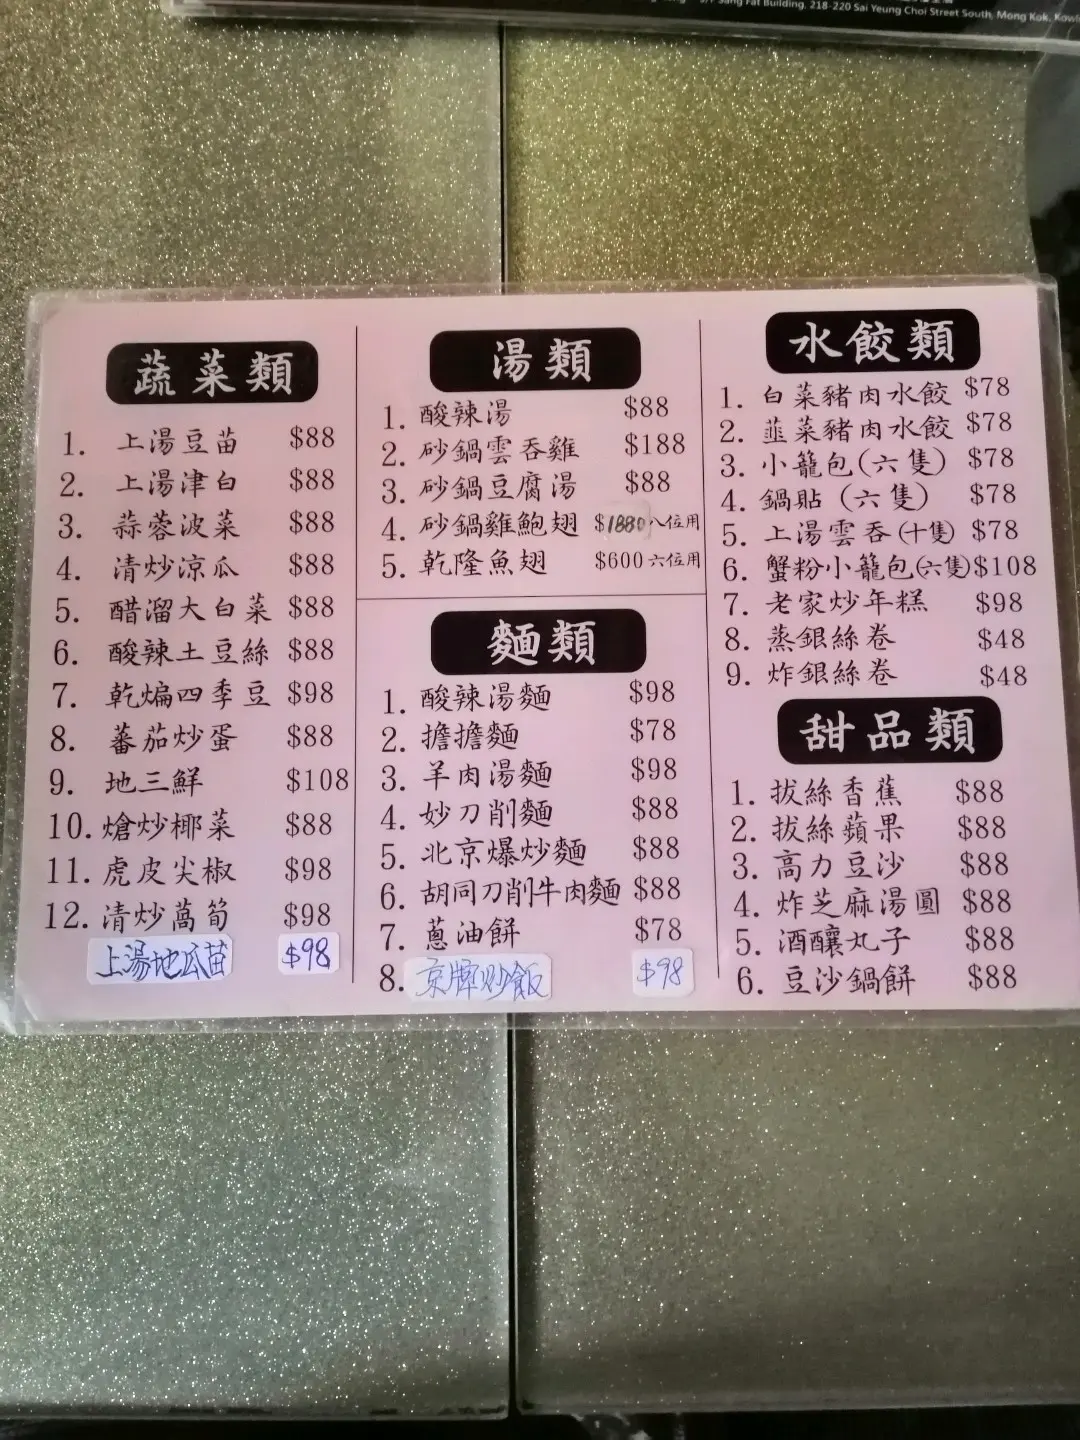 Sang Fat Building, 218-220 Sai Yeung Choi Street South, Mong Kok,
蔬菜類
1. 上湯豆苗 $88
2. 上湯津白 $88
3. 蒜蓉波菜 $88
4. 清炒涼瓜 $88
5. 醋溜大白菜 $88
6. 酸辣土豆絲 $88
7. 乾煸四季豆 $98
8. 蕃茄炒蛋 $88
9. 地三鮮 $108
10. 熗炒椰菜 $88
11. 虎皮尖椒 $98
12. 清炒萵筍 $98
上湯地瓜苗 $98
湯類
1. 酸辣湯 $88
2. 砂鍋雲吞雞 $188
3. 砂鍋豆腐湯 $88
4. 砂鍋雞鮑翅 $1880 八位用
5. 乾隆魚翅 $600 六位用
麵類
1. 酸辣湯麵 $98
2. 擔擔麵 $78
3. 羊肉湯麵 $98
4. 炒刀削麵 $88
5. 北京爆炒麵 $88
6. 胡同刀削牛肉麵 $88
7. 蔥油餅 $78
8. 京牌炒飯 $98
水餃類
1. 白菜豬肉水餃 $78
2. 韮菜豬肉水餃 $78
3. 小籠包(六隻) $78
4. 鍋貼 (六隻) $78
5. 上湯雲吞(十隻) $78
6. 蟹粉小籠包(六隻) $108
7. 老家炒年糕 $98
8. 蒸銀絲卷 $48
9. 炸銀絲卷 $48
甜品類
1. 拔絲香蕉 $88
2. 拔絲蘋果 $88
3. 高力豆沙 $88
4. 炸芝麻湯圓 $88
5. 酒釀丸子 $88
6. 豆沙鍋餅 $88